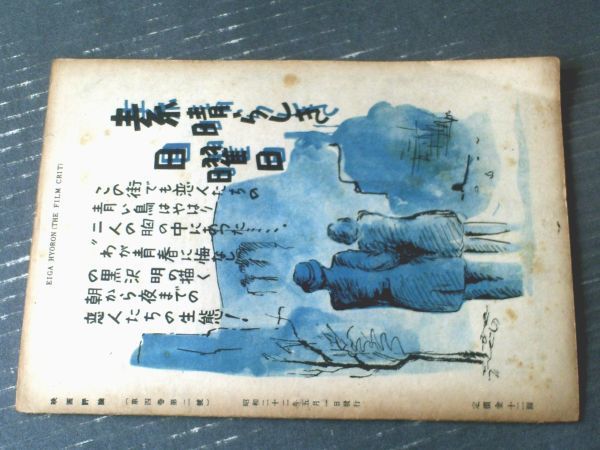 素晴らしき
日曜日
この街でも恋人たちの
青い鳥はやはり
二人の胸の中にあった……
"わが青春に悔なし"
の黒沢明の描く
朝から夜までの
恋人たちの生態!
EIGA HYORON (THE FILM CRIT)
映画評論 (第四巻第二號) 昭和二十二年五月一日發行 定價金十二圓